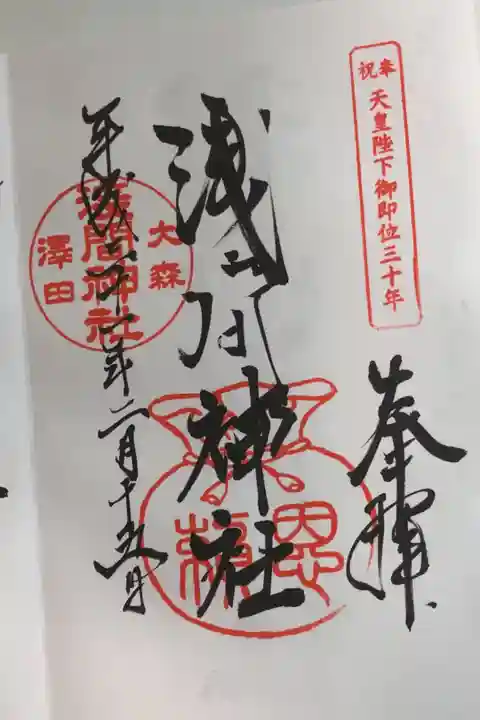 奉祝 天皇陛下御即位三十年
奉拝
浅間神社
恩頼
平成三十一年二月十五日
大森
浅間神社
澤田